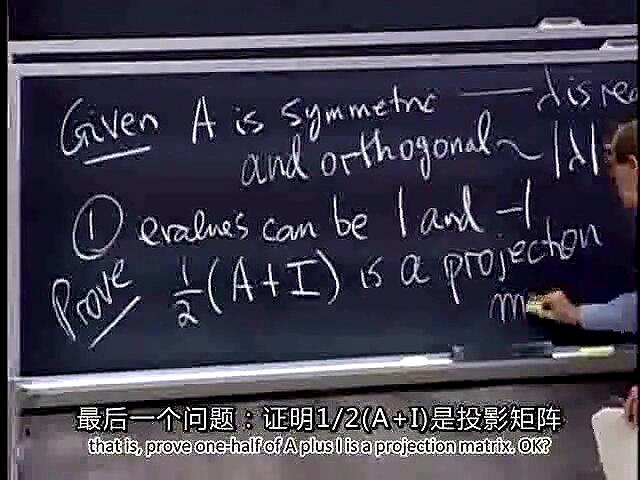 Given A is symmetric — λ is rea
and orthogonal ~ |λ|
① evalues can be 1 and -1
Prove 1/2 (A+I) is a projection
m
最后一个问题：证明1/2(A+I)是投影矩阵
that is, prove one-half of A plus I is a projection matrix. OK?